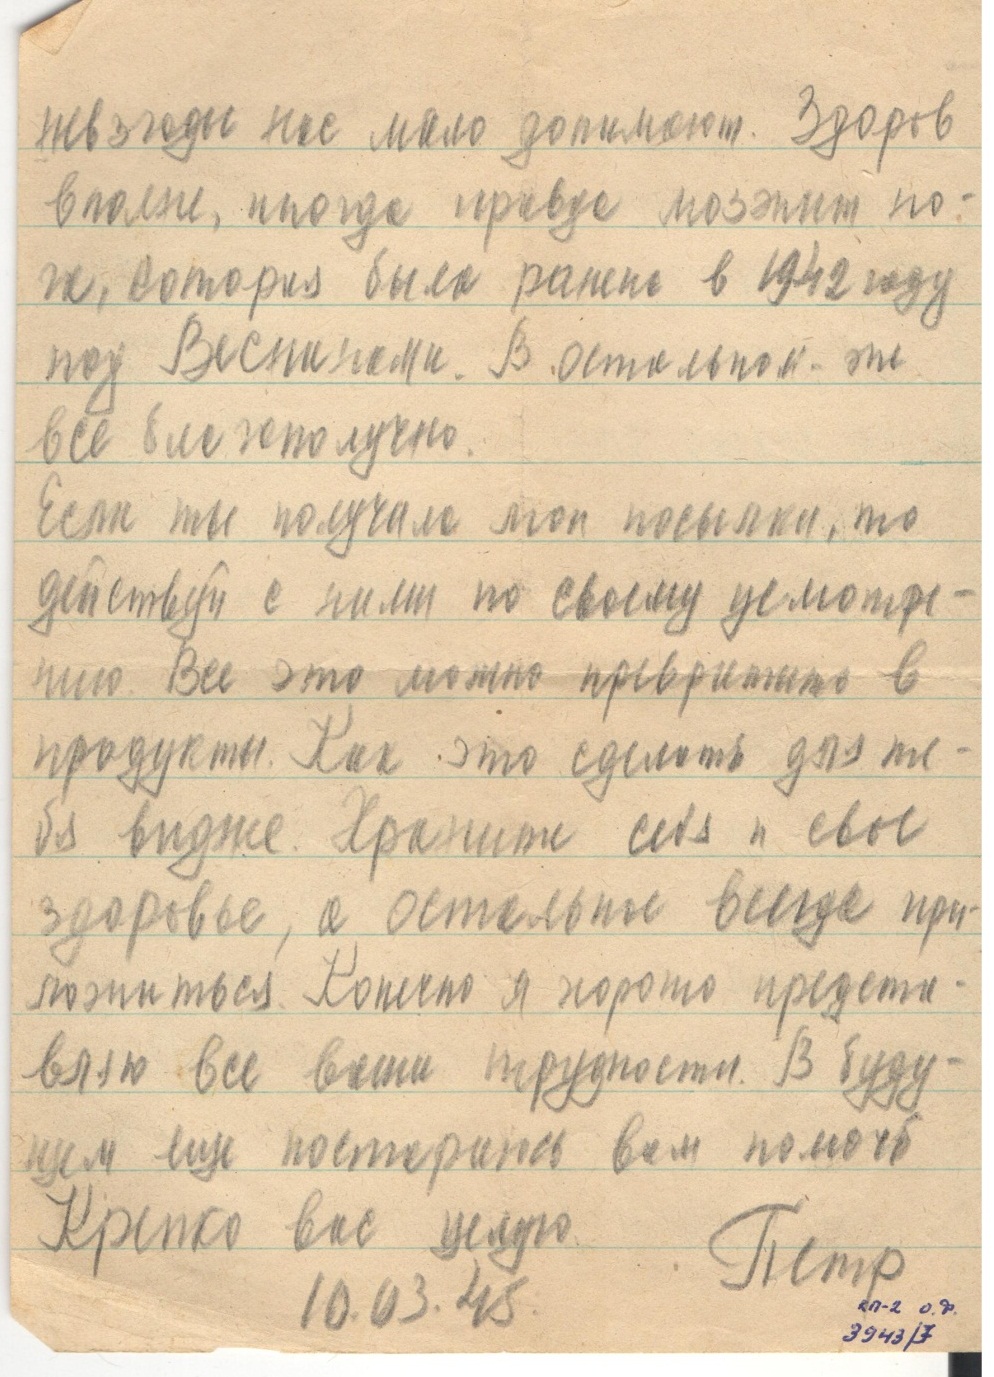 невзгоды нас мало донимают. Здоров
вполне, иногда правда мозжит но-
га, которая была ранена в 1942 году
под Веснинами. В остальном же
все благополучно.
Если ты получила мои посылки, то
действуй с ними по своему усмотре-
нию. Все это можно превратить в
продукты. Как это сделать для те-
бя виднее. Храните себя и свое
здоровье, а остальное всегда при-
ложиться. Конечно я хорошо представ-
вляю все ваши трудности. В буду-
щем еще постараюсь вам помочь
Крепко вас целую.
Петр
10.03.45.
КП-2 о.ф.
3943/7